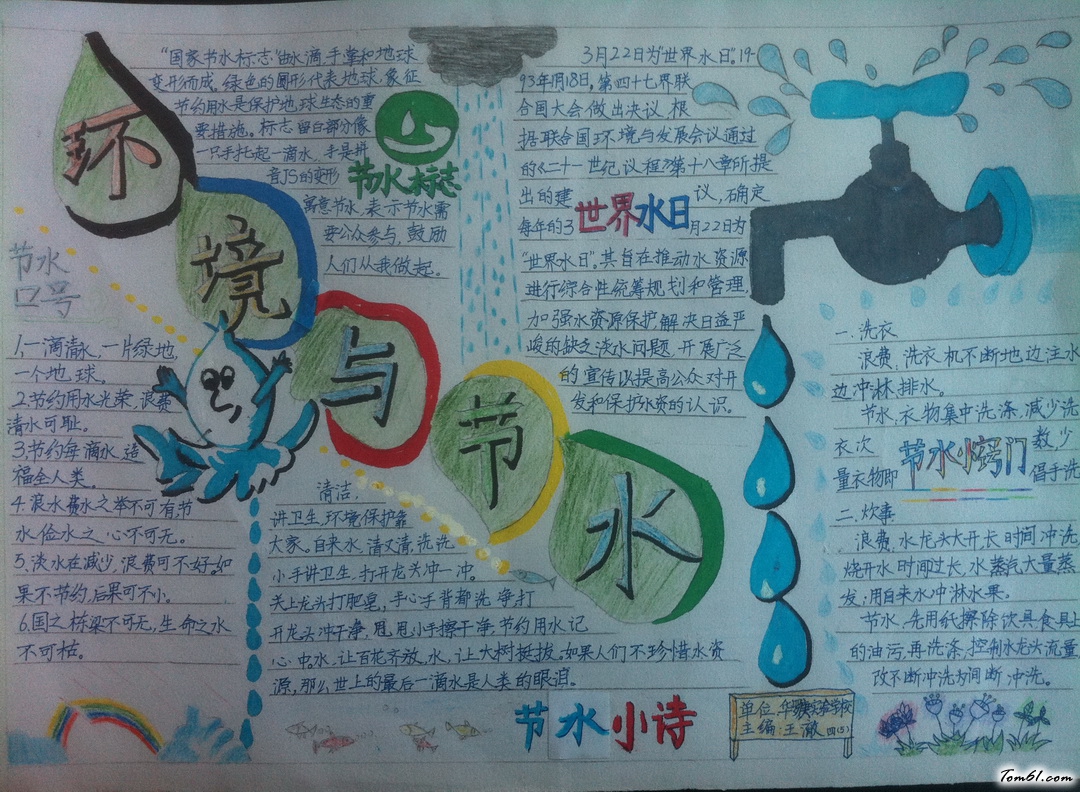 环境与节水
"国家节水标志"由水滴,手掌和地球
变形而成。绿色的圆形代表地球,象征
节约用水是保护地球生态的重
要措施。标志留白部分像
一只手托起一滴水,手是拼
音JS的变形
寓意节水,表示节水需
要公众参与,鼓励
人们从我做起。
节水标志
3月22日为"世界水日"。19
93年1月18日,第四十七界联
合国大会做出决议,根
据联合国环境与发展会议通过
的《二十一世纪议程》第十八章所提
出的建 议,确定
每年的3 月22日为
"世界水日"。其旨在推动水资源
进行综合性统筹规划和管理,
加强水资源保护,解决日益严
峻的缺乏淡水问题,开展广泛
的宣传以提高公众对开
发和保护水资的认识。
世界水日
节水
口号
1,一滴清水,一片绿地,
一个地球。
2.节约用水光荣,浪费
清水可耻。
3,节约每滴水,造
福全人类。
4.浪水费水之举不可有节
水俭水之心不可无。
5,淡水在减少,浪费可不好。如
果不节约,后果可不小。
6,国之栋梁不可无,生命之水
不可枯。
清洁,
讲卫生,环境保护靠
大家。自来水,清又清,洗洗
小手讲卫生,打开龙头冲一冲。
关上龙头打肥皂,手心手背都洗净,打
开龙头冲干净,甩甩小手擦干净,节约用水记
心中。水,让百花齐放,水,让大树挺拔,如果人们不珍惜水资
源,那么世上的最后一滴水是人类的眼泪。
节水小诗
一.洗衣
浪费,洗衣机不断地边注水
边冲淋,排水。
节水,衣物集中洗涤,减少洗
衣次 数,少
量衣物即 倡手洗
节水小窍门
二.炊事
浪费,水龙头大开,长时间冲洗
烧开水时间过长,水蒸汽大量蒸
发;用自来水冲淋水果。
节水,先用纸擦除饮具食具上
的油污,再洗涤,控制水龙头流量
改不断冲洗为间断冲洗。
单位:
主编:王 四(5)
Tom61.com